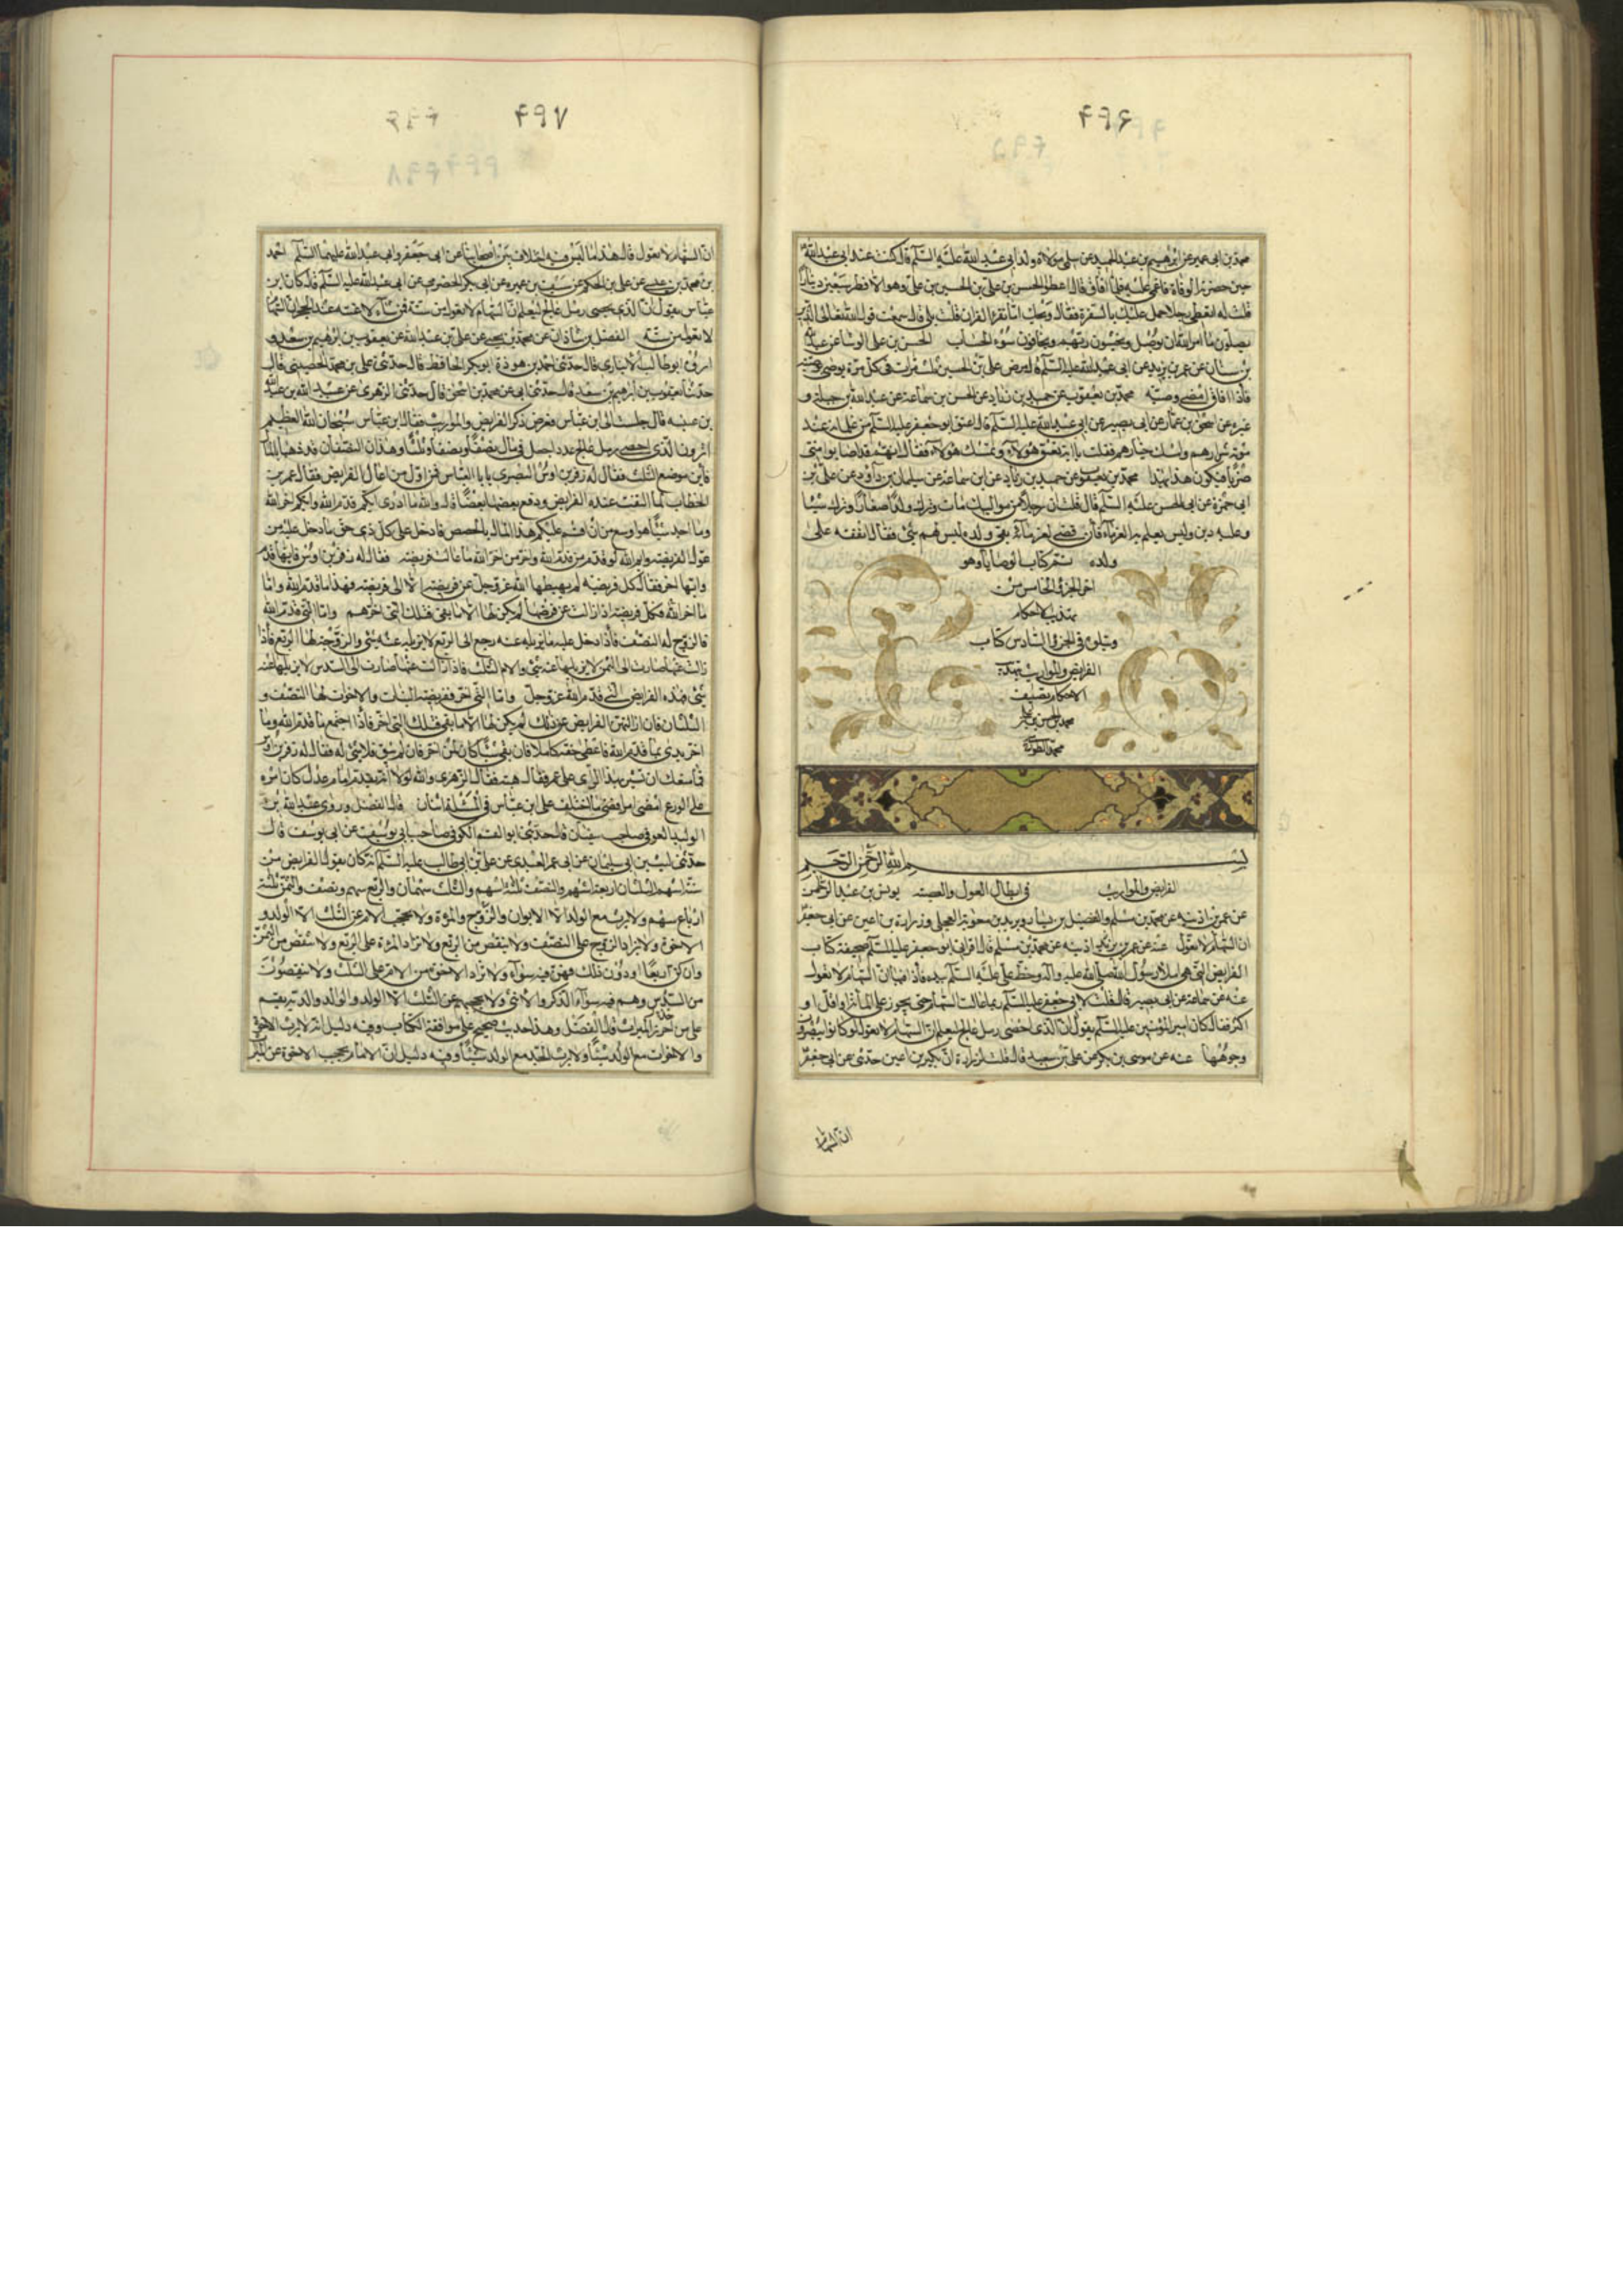 ۴۹۶
محمد بن ابى عمير عن ابرهيم بن عبد الحميد عن سلمى مولاة ولد ابى عبد الله عليه السلم قالت كنت عند ابى عبد الله
حين حضرته الوفاة فاغمى عليه فلما افاق قال اعطوا الحسن بن على بن الحسين بن على وهو الافطس سبعين دينارا
قلت له اتعطى رجلا حمل عليك بالشفرة فقال ويحك اما تقرا القران قلت بلى قال سمعت قول الله تعالى الذين
يصلون ما امر الله ان يوصل ويخشون ربهم ويخافون سوء الحساب الحسن بن على الوشا عن عبد الله
بن سنان عن عمر بن يزيد عن ابى عبد الله عليه السلم قال مرض على بن الحسين ثلث مرات فى كل مرة يوصى بوصية
فاذا افاق امضى وصيته محمد بن يعقوب عن حميد بن زياد عن الحسن بن سماعة عن عبد الله بن جبلة و
غيره عن اسحق بن عمار عن ابى بصير عن ابى عبد الله عليه السلم قال اعتق ابو جعفر عليه السلم من غلمانه عند
موته شرارهم وامسك خيارهم فقلت يا ابة تعتق هؤلاء وتمسك هؤلاء فقال انهم قد اصابوا منى
ضربا فيكون هذا بهذا محمد بن يعقوب عن حميد بن زياد عن ابن سماعة عن سليمان بن داود عن على بن
ابى حمزة عن ابى الحسن عليه السلم قال قلت ان رجلا من مواليك مات وترك ولدا صغارا وترك شيئا
وعليه دين وليس يعلم به الغرماء فان قضى لغرمائه بقى ولده ليس لهم شئ فقال انفقه على
ولده تم كتاب الوصايا وهو
اخر الجزء الخامس من
تهذيب الاحكام
ويتلوه فى الجزء السادس كتاب
الفرايض والمواريث
الاحكام تصنيف
محمد بن الحسن بن على
محمد الطوسى
بسم الله الرحمن الرحيم
الفرايض والمواريث فى ابطال العول والعصبة يونس بن عبد الرحمن
عن عمر بن اذينه عن محمد بن مسلم والفضيل بن يسار وبريد بن معوية العجلى وزرارة بن اعين عن ابى جعفر
ان السهام لا تعول عنه عن عمر بن اذينه عن محمد بن مسلم قال اقرانى ابو جعفر عليه السلم صحيفة كتاب
الفرايض التى هى املاء رسول الله صلى الله عليه واله وخط على عليه السلم بيده فاذا فيها ان السهام لا تعول
عنه عن سماعة عن ابى بصير قال قلت لابى جعفر عليه السلم ربما عالت السهام حتى يجوز على المائة او اقل او
اكثر فقال كان امير المؤمنين عليه السلم يقول ان الذى احصى رمل عالج ليعلم ان السهام لا تعول لو كانوا يبصرون
وجوهها عنه عن موسى بن بكر عن على بن سعيد قال قلت لزرارة ان بكير بن اعين حدثنى عن ابى جعفر
ان السهام
۴۹۷
ان السهام لا تعول قال هذا ما ليس فيه اختلاف بين اصحابنا عن ابى جعفر وابى عبد الله عليهما السلم احمد
بن محمد بن عيسى عن على بن الحكم عن سيف بن عميره عن ابى بكر الحضرمى عن ابى عبد الله عليه السلم قال كان ابن
عباس يقول ان الذى يحصى رمل عالج ليعلم ان السهام لا تعول من ستة فمن شاء لاعنته عند الحجر ان السهام
لا تعول من ستة الفضل بن شاذان عن محمد بن يحيى عن على بن عبد الله عن يعقوب بن ابرهيم بن سعد و
ابو طالب الانبارى قال حدثنى احمد بن هوذة ابو بكر الحافظ قال حدثنى على بن محمد الحصينى قال
حدثنا يعقوب بن ابرهيم بن سعد قال حدثنى ابى عن محمد بن اسحق قال حدثنى الزهرى عن عبيد الله بن عبد الله
بن عتبه قال جلست الى ابن عباس فعرض ذكر الفرايض والمواريث فقال ابن عباس سبحان الله العظيم
اترون الذى احصى رمل عالج عددا جعل فى مال نصفا ونصفا وثلثا وهذان النصفان قد ذهبا بالمال
فاين موضع الثلث فقال له زفر بن اوس البصرى يا با العباس فمن اول من اعال الفرايض فقال عمر بن
الخطاب لما التفت عنده الفرايض ودفع بعضها بعضا قال والله ما ادرى ايكم قدم الله وايكم اخر الله
وما اجد شيئا هو اوسع من ان اقسم عليكم هذا المال بالحصص فادخل على كل ذى حق ما دخل عليه من
عول الفريضه وايم الله لو قدم من قدم الله واخر من اخر الله ما عالت فريضه فقال له زفر بن اوس فايها قدم
وايها اخر فقال كل فريضه لم يهبطها الله عز وجل عن فريضه الا الى فريضه فهذا ما قدم الله واما
ما اخر الله فكل فريضه اذا زالت عن فرضها لم يكن لها الا ما بقى فتلك التى اخرهم واما التى قدم الله
فالزوج له النصف فاذا دخل عليه ما يزيله عنه رجع الى الربع لا يزيله عنه شئ والزوجة لها الربع فاذا
زالت عنها صارت الى الثمن لا يزيلها عنه شئ والام لها الثلث فاذا زالت عنها صارت الى السدس لا يزيلها عنه
شئ فهذه الفرايض التى قدم الله عز وجل واما التى اخر ففريضة البنات والاخوات لها النصف و
الثلثان فان ازالتهن الفرايض عن ذلك لم يكن لها الا ما بقى فتلك التى اخر فاذا اجتمع ما قدم الله وما
اخر بدئ بما قدم الله فاعطى حقه كاملا فان بقى شئ كان لمن اخر فان لم يبق فلا شئ له فقال له زفر بن اوس
فما منعك ان تشير بهذا الراى على عمر فقال هبته فقال الزهرى والله لولا انه تقدمه امام عدل كان امره
على الورع امضى امرا فمضى ما اختلف على ابن عباس فى المسئلة اثنان قال الفضل وروى عبد الله بن
الوليد العوفى صاحب سفيان قال حدثنى ابو القسم الكوفى صاحب ابى يوسف عن ابى يوسف قال
حدثنى ليث بن ابى سليمان عن ابى عمر العبدى عن على بن ابى طالب عليه السلم انه كان يقول الفرايض من
ستة اسهم الثلثان اربعة اسهم والنصف ثلثة اسهم والثلث سهمان والربع سهم ونصف والثمن ثلثة
ارباع سهم ولا يرث مع الولد الا الابوان والزوج والمرءة ولا يحجب الام عن الثلث الا الولد و
الاخوة ولا يزاد الزوج على النصف ولا ينقص من الربع ولا تزاد المرءة على الربع ولا تنقص من الثمن
وان كن اربعا او دون ذلك فهن فيه سواء ولا تزاد الاخوة من الام على الثلث ولا ينقصون
من السدس وهم فيه سواء الذكر والانثى ولا يحجبهم عن الثلث الا الولد والوالد والديه يقسم
على من احرز الميراث قال الفضل وهذا حديث صحيح على موافقة الكتاب وفيه دليل انه لا يرث الاخوة
والاخوات مع الولد شيئا ولا يرث الجد مع الولد شيئا وفيه دليل ان الام تحجب الاخوة عن الميراث